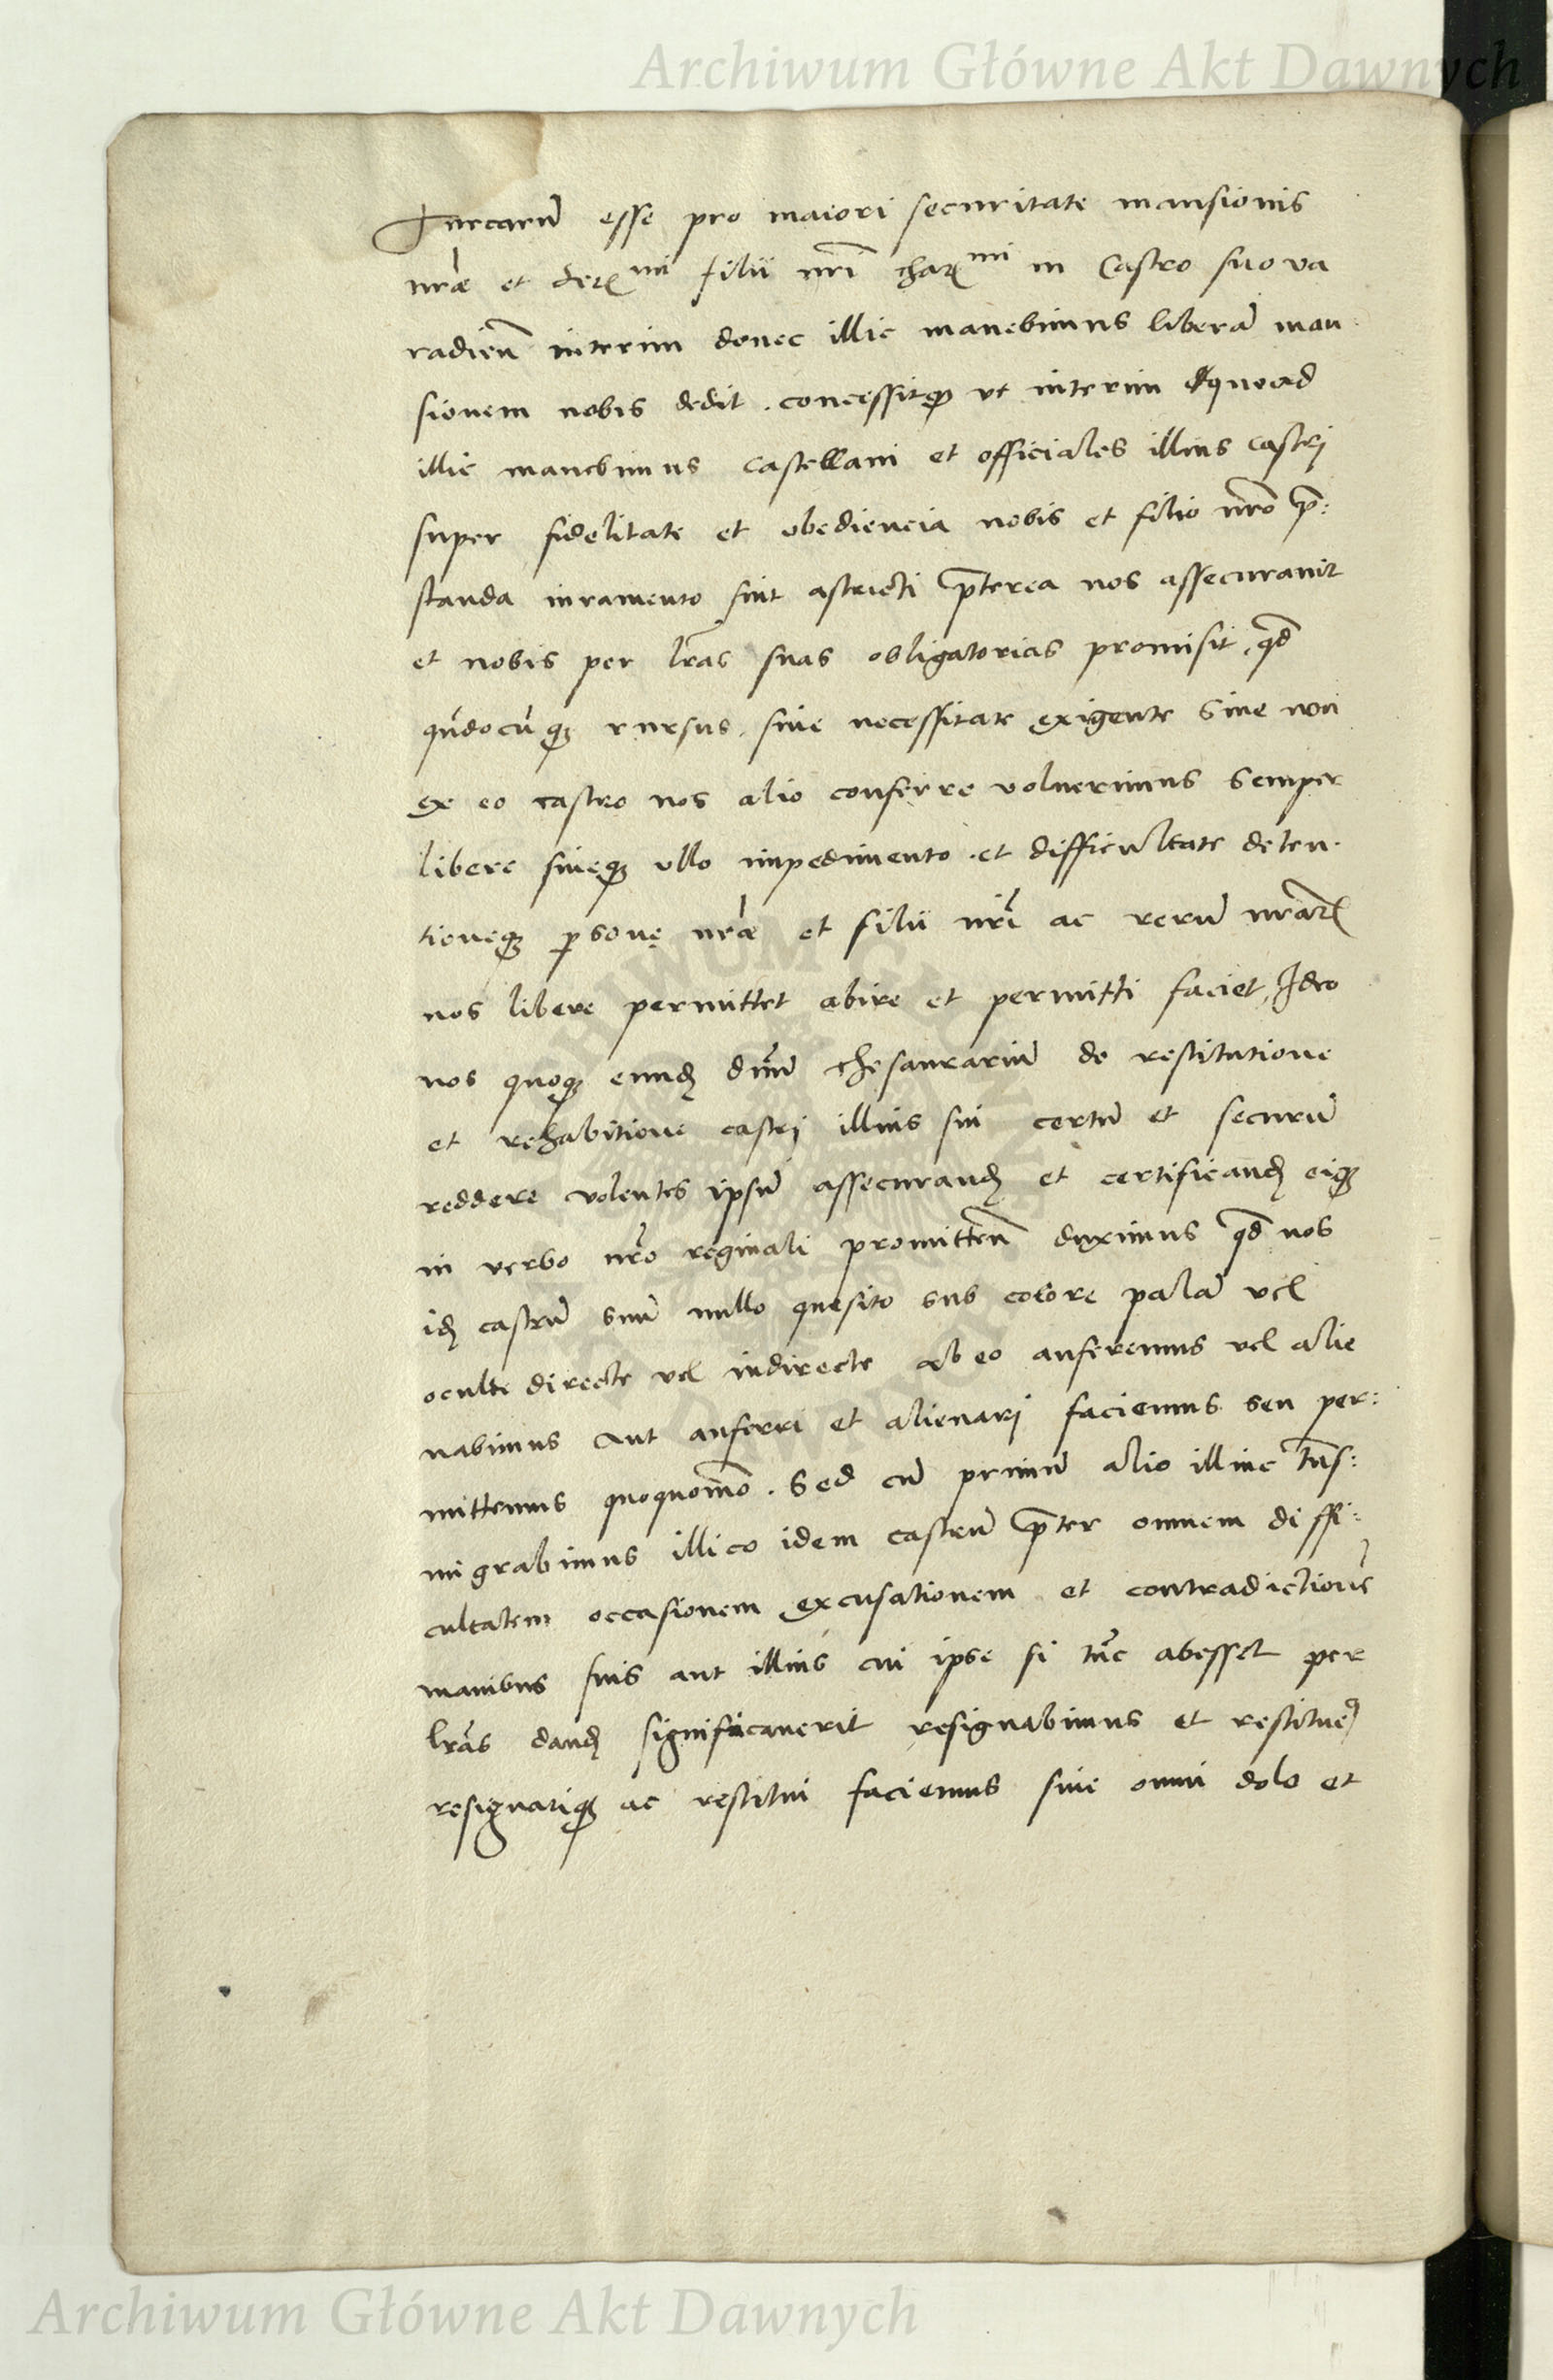 Archiwum Główne Akt Dawnych
Turcarū esse pro maiori securitate mansionis
nrāe et Serᵐⁱ filii nrī̄ charᵐⁱ in Castro suo va
radien̄ interim donec illic manebimus liberā man
sionem nobis dedit . concessitq; vt interim quoad
illic manebimus castellani et officiales illius castrj
super fidelitate et obediencia nobis et filio nrō p̄:
standa iuramento sint astricti p̄terea nos assecurauit
et nobis per lrās suas obligatorias promisit, qd̄
qn̄docūq; rursus, siue necessitate exigente siue non
ex eo castro nos alio conferre voluerimus semper
libere sineq; vllo impedimento . et difficultate deten.
tioneq; ꝑsonę nrāe et filii nrī ac rerū nrāꝝ
nos libere permittet abire et permitti faciet, Ideo
nos quoq; eund̄ dnm̄ thesaurariū de restitutione
et rehabitione castrj illius sui certū et securū
reddere volentes ipsū assecurand̄ et certificand̄ eiq;
in verbo nrō reginali promitten̄ duximus qd̄ nos
id̄ castrū suū nullo quesito sub colore palā vel
oculte directe vel indirecte ab eo auferemus vel alie
nabimus aut auferri et alienarj faciemus seu per:
mittemus quoquomō . Sed cū primū alio illinc tn̄s:
migrabimus illico idem castrū p̄ter omnem diffi:
cultatem occasionem excusationem et contradictionē
manibus suis aut illius cui ipse si tūc abesset per
lrās dand̄ significauerit resignabimus et restitue꜒
resignariq; ac restitui faciemus sine omni dolo et
Archiwum Główne Akt Dawnych